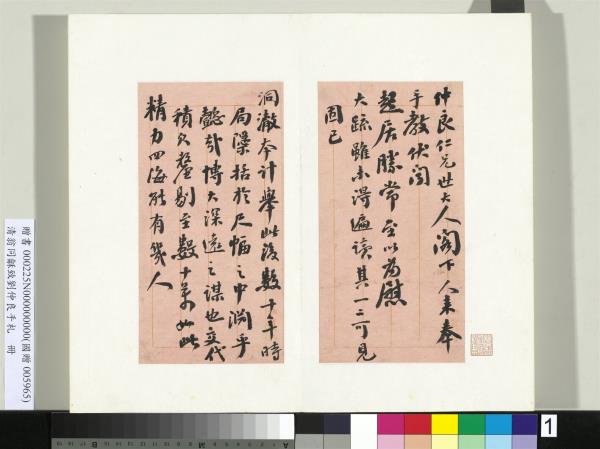 仲良仁兄世大人閣下人來奉
手教伏聞
起居勝常至以為慰
大疏雖未得遍讀其一二可見
固已
洞澈本計舉此後數十年時
局隱括於尺幅之中淵乎
懿哉博大深遠之謀也交代
積久釐剔至數十萬如此
精力四海能有幾人
贈書 000225N000000000(國贈 005965)
清翁同龢致劉仲良手札 冊
1